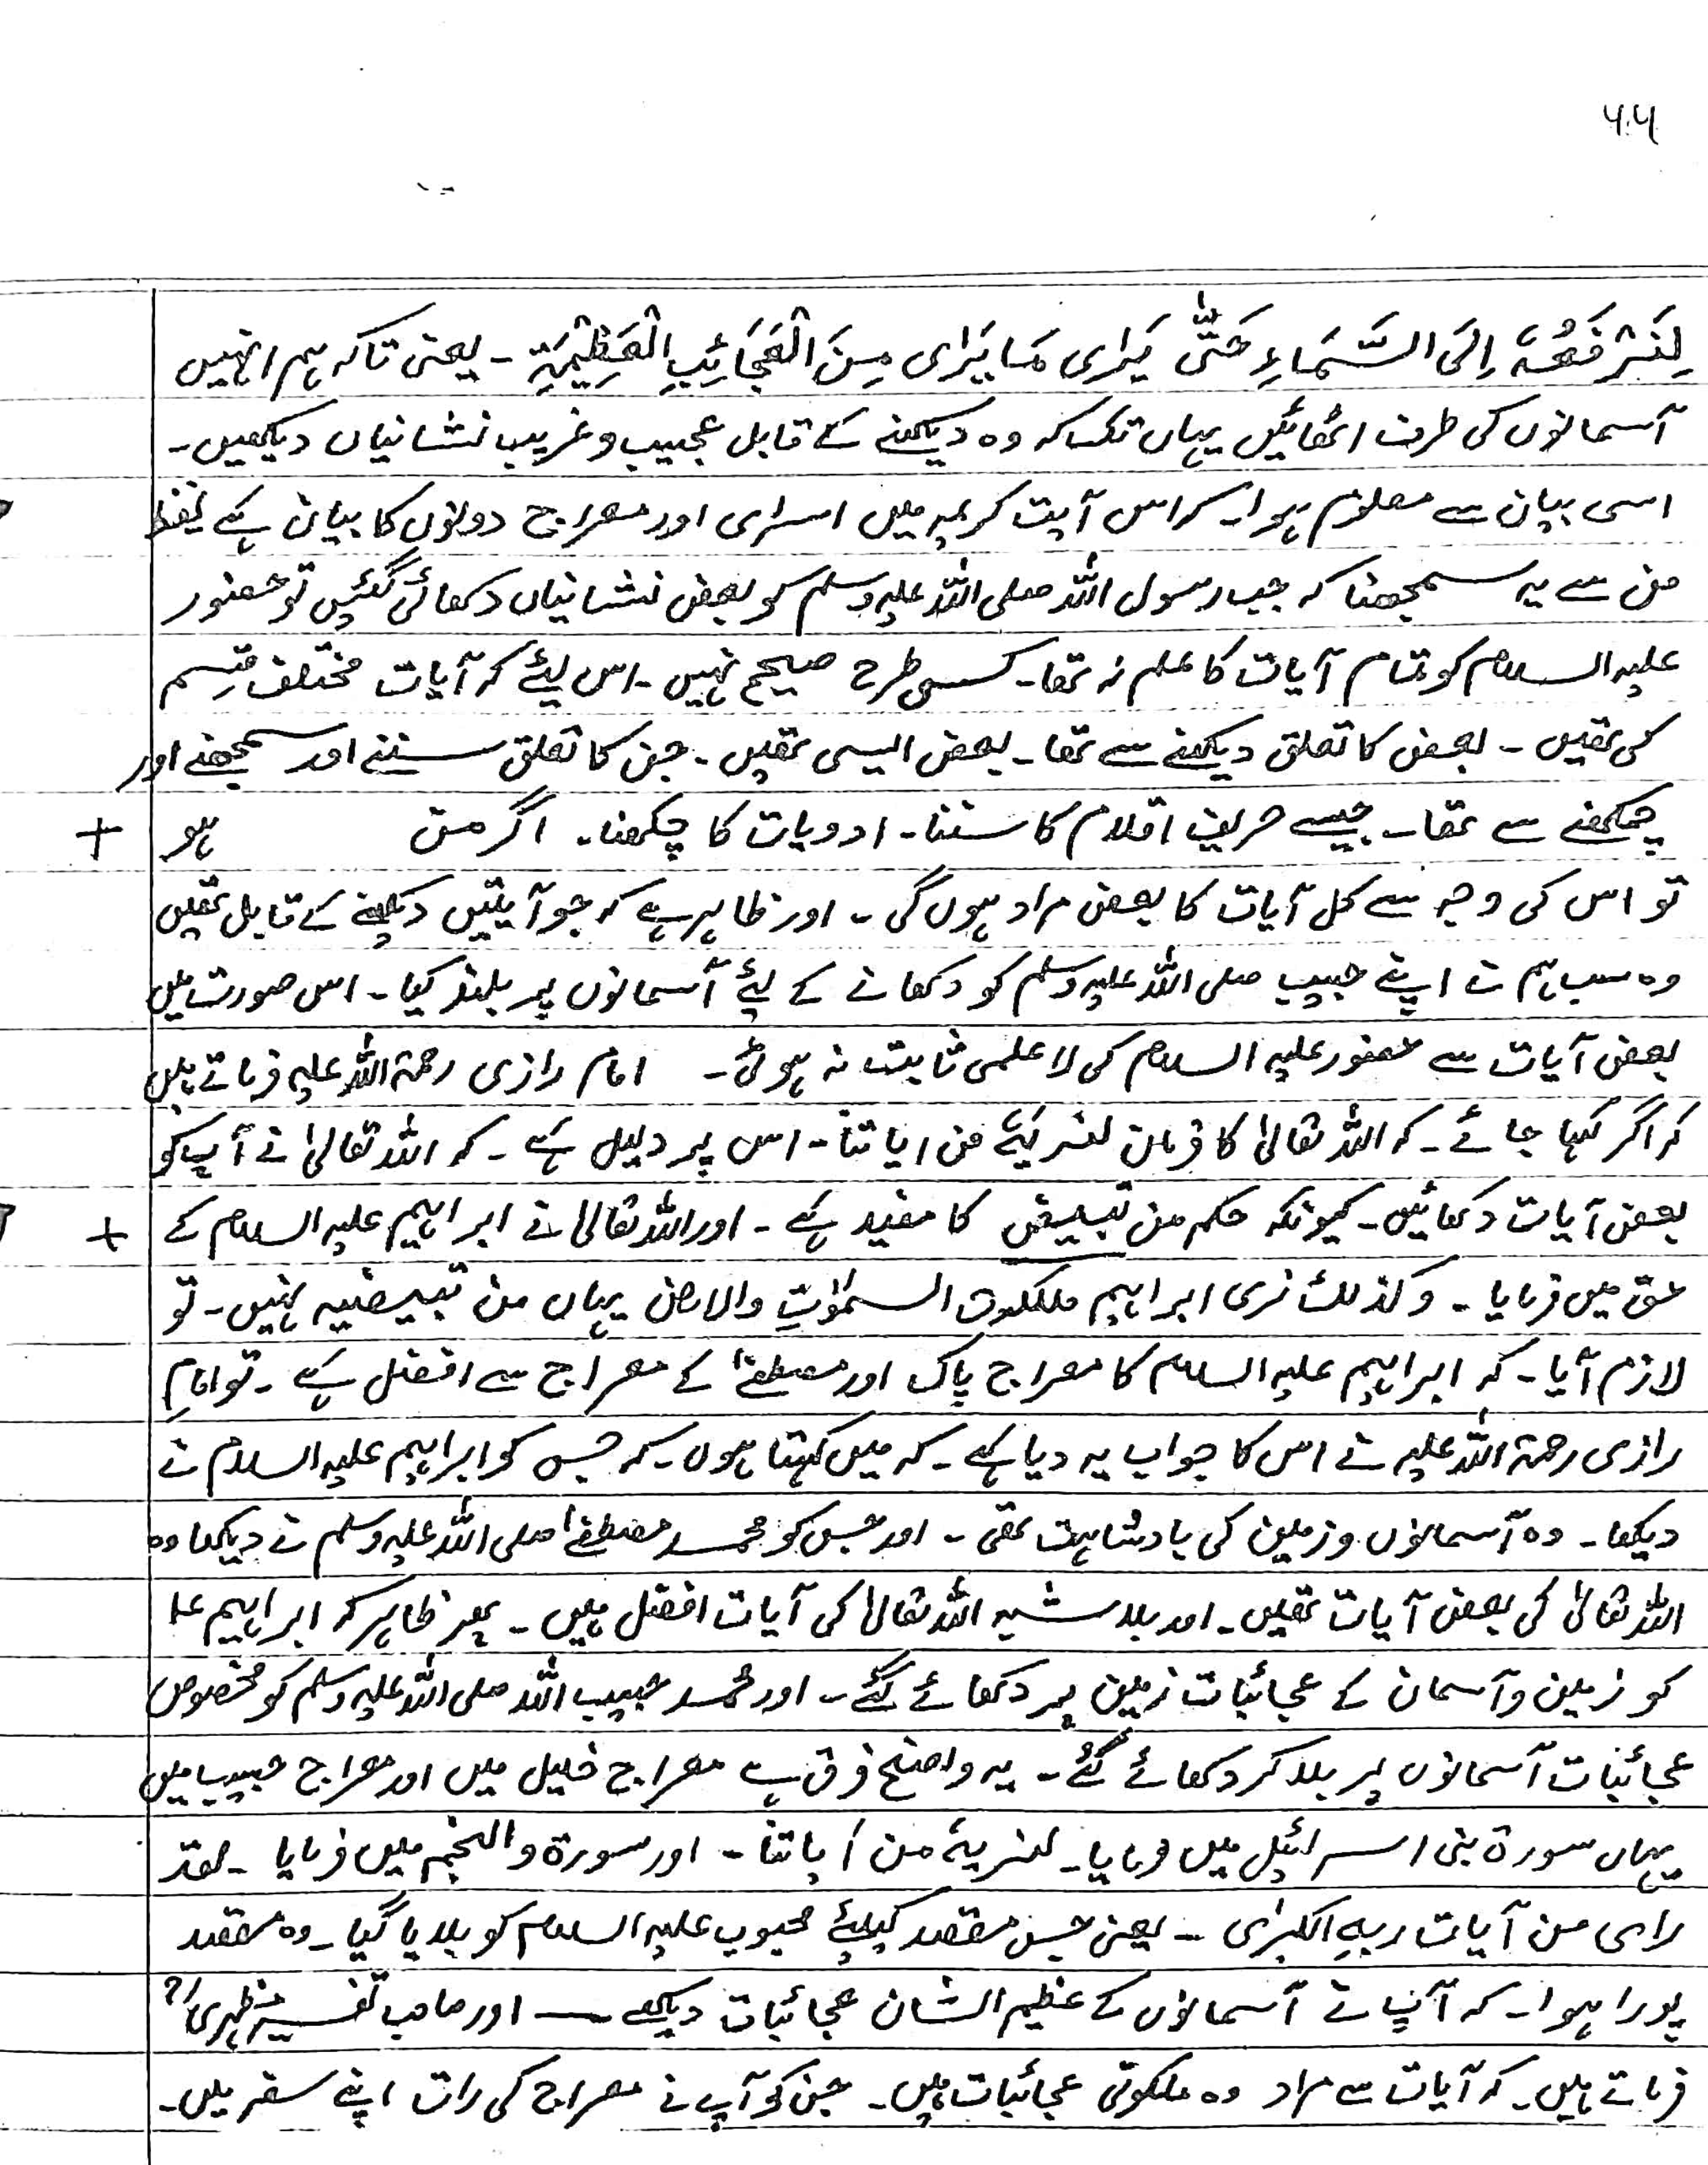 ۶۰۶
لِنَرْفَعَهٗ اِلَی السَّمَاءِ حَتّٰی یَرٰی مَا یَرٰی مِنَ الْعَجَائِبِ الْعَظِیْمَةِ ۔ یعنی تاکہ ہم انہیں
آسمانوں کی طرف اٹھائیں یہاں تک کہ وہ دیکھنے کے قابل عجیب و غریب نشانیاں دیکھیں۔
اسی بیان سے معلوم ہوا۔ کہ اس آیت کریمہ میں اسری اور معراج دونوں کا بیان ہے لفظ
من سے یہ سمجھنا کہ جب رسول اللہ صلی اللہ علیہ وسلم کو بعض نشانیاں دکھائی گئیں تو حضور
علیہ السلام کو تمام آیات کا علم نہ تھا۔ کسی طرح صحیح نہیں۔ اس لیئے کہ آیات مختلف قسم
کی تھیں ۔ بعض کا تعلق دیکھنے سے تھا۔ بعض ایسی تھیں۔ جن کا تعلق سننے اور سمجھنے اور
چکھنے سے تھا۔ جیسے صریف اقلام کا سننا۔ ادویات کا چکھنا۔ اگر من ہو +
تو اس کی وجہ سے کل آیات کا بعض مراد ہوں گی ۔ اور ظاہر ہے کہ جو آیتیں دیکھنے کے قابل تھیں
وہ سب ہم نے اپنے حبیب صلی اللہ علیہ وسلم کو دکھانے کے لیئے آسمانوں پر بلند کیا۔ اس صورت میں
بعض آیات سے حضور علیہ السلام کی لا علمی ثابت نہ ہوئی۔ امام رازی رحمۃ اللہ علیہ فرماتے ہیں
کہ اگر کہا جائے۔ کہ اللہ تعالیٰ کا فرمان لنریَہٗ من ایاتنا۔ اس پر دلیل ہے ۔ کہ اللہ تعالیٰ نے آپ کو
بعض آیات دکھائیں۔ کیونکہ حکم من تبعیض کا مفید ہے ۔ اور اللہ تعالیٰ نے ابراہیم علیہ السلام کے +
حق میں فرمایا ۔ وکذلک نری ابراہیم ملکوت السمٰوٰتِ والارض یہاں من تبعیضیہ نہیں۔ تو
لازم آیا۔ کہ ابراہیم علیہ السلام کا معراج پاک اور مصطفےٰ کے معراج سے افضل ہے ۔ تو امامِ
رازی رحمۃ اللہ علیہ نے اس کا جواب یہ دیا ہے ۔ کہ میں کہتا ہوں۔ کہ جس کو ابراہیم علیہ السلام نے
دیکھا۔ وہ آسمانوں و زمین کی بادشاہت تھی ۔ اور جس کو محمد مصطفےٰ صلی اللہ علیہ وسلم نے دیکھا وہ
اللہ تعالیٰ کی بعض آیات تھیں۔ اور بلا شبہ اللہ تعالیٰ کی آیات افضل ہیں ۔ پھر ظاہر کہ ابراہیم علا
کو زمین و آسمان کے عجائبات زمین پر دکھائے گئے۔ اور محمد حبیب اللہ صلی اللہ علیہ وسلم کو مخصوص
عجائبات آسمانوں پر بلا کر دکھائے گئے۔ یہ واضح فرق ہے معراج خلیل میں اور معراج حبیب میں
یہاں سورۃ بنی اسرائیل میں فرمایا۔ لنریہٗ من اٰیاتنا۔ اور سورۃ والنجم میں فرمایا ۔ لقد
رای من آیات ربہِ الکبرٰی ۔ یعنی جس مقصد کیلئے محبوب علیہ السلام کو بلایا گیا۔ وہ مقصد
پورا ہوا۔ کہ آپ نے آسمانوں کے عظیم الشان عجائبات دیکھے — اور صاحب تفسیر مظہری
فرماتے ہیں۔ کہ آیات سے مراد وہ ملکوتی عجائبات ہیں۔ جن کو آپ نے معراج کی رات اپنے سفر میں۔